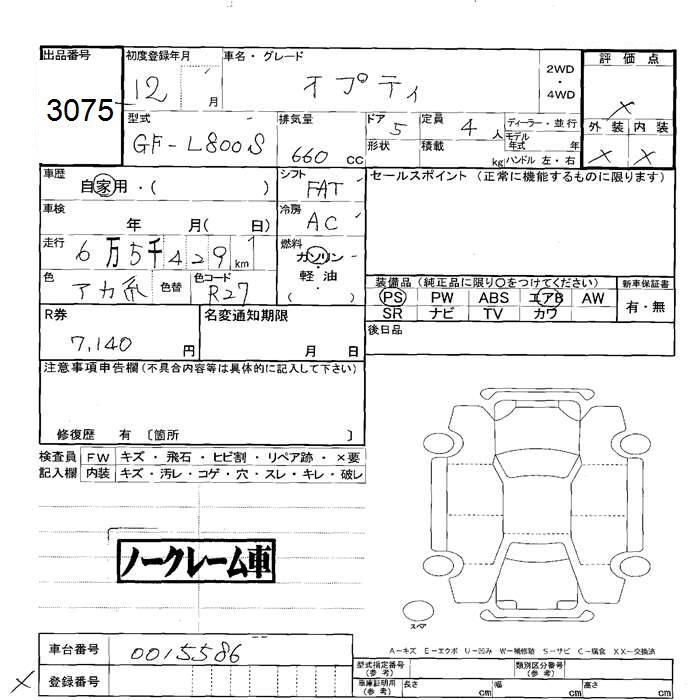 出品番号 初度登録年月 車名・グレード 評価点
3075 12 月 オプティ 2WD ・ 4WD ×
型式 排気量 ドア 定員 ディーラー・並行 外装 内装
GF-L800S 660 cc 5 4 人 モデル年式 年 × ×
形状 積載 kg ハンドル 左・右
車歴 シフト セールスポイント (正常に機能するものに限ります)
自家用・( ) FAT
車検 年 月( 日) 冷房 AC
走行 6万5千429 km 燃料 ガソリン・軽油 ( )
色 色替 色コード 装備品 (純正品に限り○をつけてください) 新車保証書
アカ系 R27 PS PW ABS エアB AW 有・無
SR ナビ TV カワ
R券 名変通知期限 後日品
7,140 円 月 日
注意事項申告欄(不具合内容等は具体的に記入して下さい)
修復歴 有 〔箇所 〕
検査員 FW キズ・飛石・ヒビ割・リペア跡・×要
記入欄 内装 キズ・汚レ・コゲ・穴・スレ・キレ・破レ
ノークレーム車
スペア
A-キズ E-エクボ U-凹み W-補修跡 S-サビ C-腐食 XX-交換済
車台番号 0015586
型式指定番号 (参考) 類別区分番号 (参考)
× 登録番号
車庫証明用 (参考) 長さ cm 幅 cm 高さ cm